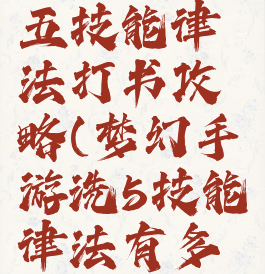 五技能律
法打书攻
略(梦幻手
游洗5技能
律法有多